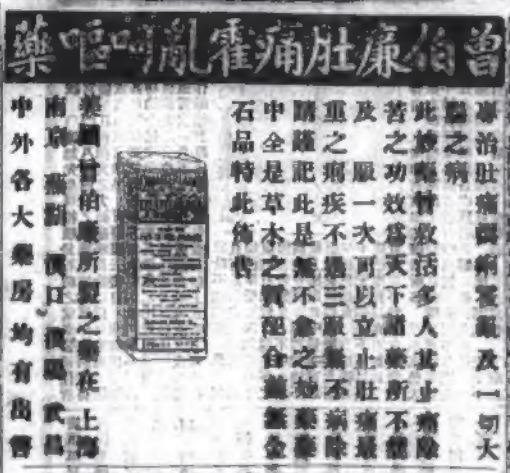 曾伯廉肚痛霍亂呵嘔藥
專治肚痛瀉痢霍亂及一切大
腸之病
此妙藥曾救活多人其止痛除
苦之功效爲天下諸藥所不能
及 服一次可以立止肚痛最
重之痢疾不過三服無不病除
請謹記此是無不愈之妙藥藥
中全是草木之質配合並無金
石品特此佈告
美國曾伯廉所製之藥在 上海
南京 漢口 漢陽 武昌
中外各大藥房均有出售